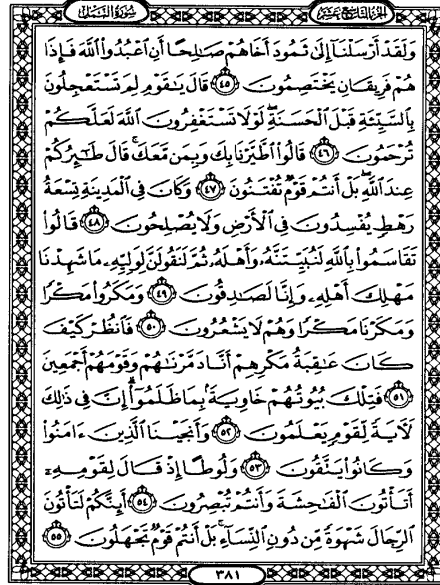 الجزء التاسع عشر
سورة النمل
وَلَقَدْ أَرْسَلْنَا إِلَىٰ ثَمُودَ أَخَاهُمْ صَـٰلِحًا أَنِ ٱعْبُدُوا۟ ٱللَّهَ فَإِذَا
هُمْ فَرِيقَانِ يَخْتَصِمُونَ ﴿٤٥﴾ قَالَ يَـٰقَوْمِ لِمَ تَسْتَعْجِلُونَ
بِٱلسَّيِّئَةِ قَبْلَ ٱلْحَسَنَةِ ۖ لَوْلَا تَسْتَغْفِرُونَ ٱللَّهَ لَعَلَّكُمْ
تُرْحَمُونَ ﴿٤٦﴾ قَالُوا۟ ٱطَّيَّرْنَا بِكَ وَبِمَن مَّعَكَ ۚ قَالَ طَـٰٓئِرُكُمْ
عِندَ ٱللَّهِ ۖ بَلْ أَنتُمْ قَوْمٌ تُفْتَنُونَ ﴿٤٧﴾ وَكَانَ فِى ٱلْمَدِينَةِ تِسْعَةُ
رَهْطٍ يُفْسِدُونَ فِى ٱلْأَرْضِ وَلَا يُصْلِحُونَ ﴿٤٨﴾ قَالُوا۟
تَقَاسَمُوا۟ بِٱللَّهِ لَنُبَيِّتَنَّهُۥ وَأَهْلَهُۥ ثُمَّ لَنَقُولَنَّ لِوَلِيِّهِۦ مَا شَهِدْنَا
مَهْلِكَ أَهْلِهِۦ وَإِنَّا لَصَـٰدِقُونَ ﴿٤٩﴾ وَمَكَرُوا۟ مَكْرًا
وَمَكَرْنَا مَكْرًا وَهُمْ لَا يَشْعُرُونَ ﴿٥٠﴾ فَٱنظُرْ كَيْفَ
كَانَ عَـٰقِبَةُ مَكْرِهِمْ أَنَّا دَمَّرْنَـٰهُمْ وَقَوْمَهُمْ أَجْمَعِينَ
﴿٥١﴾ فَتِلْكَ بُيُوتُهُمْ خَاوِيَةًۢ بِمَا ظَلَمُوٓا۟ ۗ إِنَّ فِى ذَٰلِكَ
لَـَٔايَةً لِّقَوْمٍ يَعْلَمُونَ ﴿٥٢﴾ وَأَنجَيْنَا ٱلَّذِينَ ءَامَنُوا۟
وَكَانُوا۟ يَتَّقُونَ ﴿٥٣﴾ وَلُوطًا إِذْ قَالَ لِقَوْمِهِۦٓ
أَتَأْتُونَ ٱلْفَـٰحِشَةَ وَأَنتُمْ تُبْصِرُونَ ﴿٥٤﴾ أَئِنَّكُمْ لَتَأْتُونَ
ٱلرِّجَالَ شَهْوَةً مِّن دُونِ ٱلنِّسَآءِ ۚ بَلْ أَنتُمْ قَوْمٌ تَجْهَلُونَ ﴿٥٥﴾
٣٨١